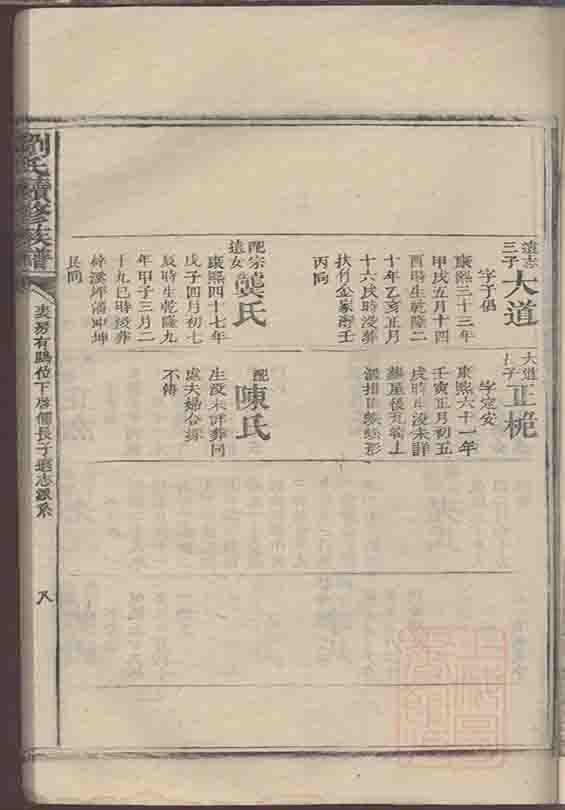 遠志三子
大道
字于倡
康熙三十三年
甲戌五月十四
酉時生乾隆二
十年乙亥正月
十六戌時沒葬
扶竹公家灣壬
丙向
配宗遠女
龔氏
康熙四十七年
戊子四月初七
辰時生乾隆九
年甲子三月二
十九巳時沒葬
梓溪坪潘冲坤
艮向
大道長子
正桅
字定安
康熙六十一年
壬寅正月初五
戌時生沒未詳
葬屋後九
配
陳氏
生沒未詳葬同
處夫婦合塚
不傳
劉氏續修族譜
表房有鵾位下啓備長子遠志派系